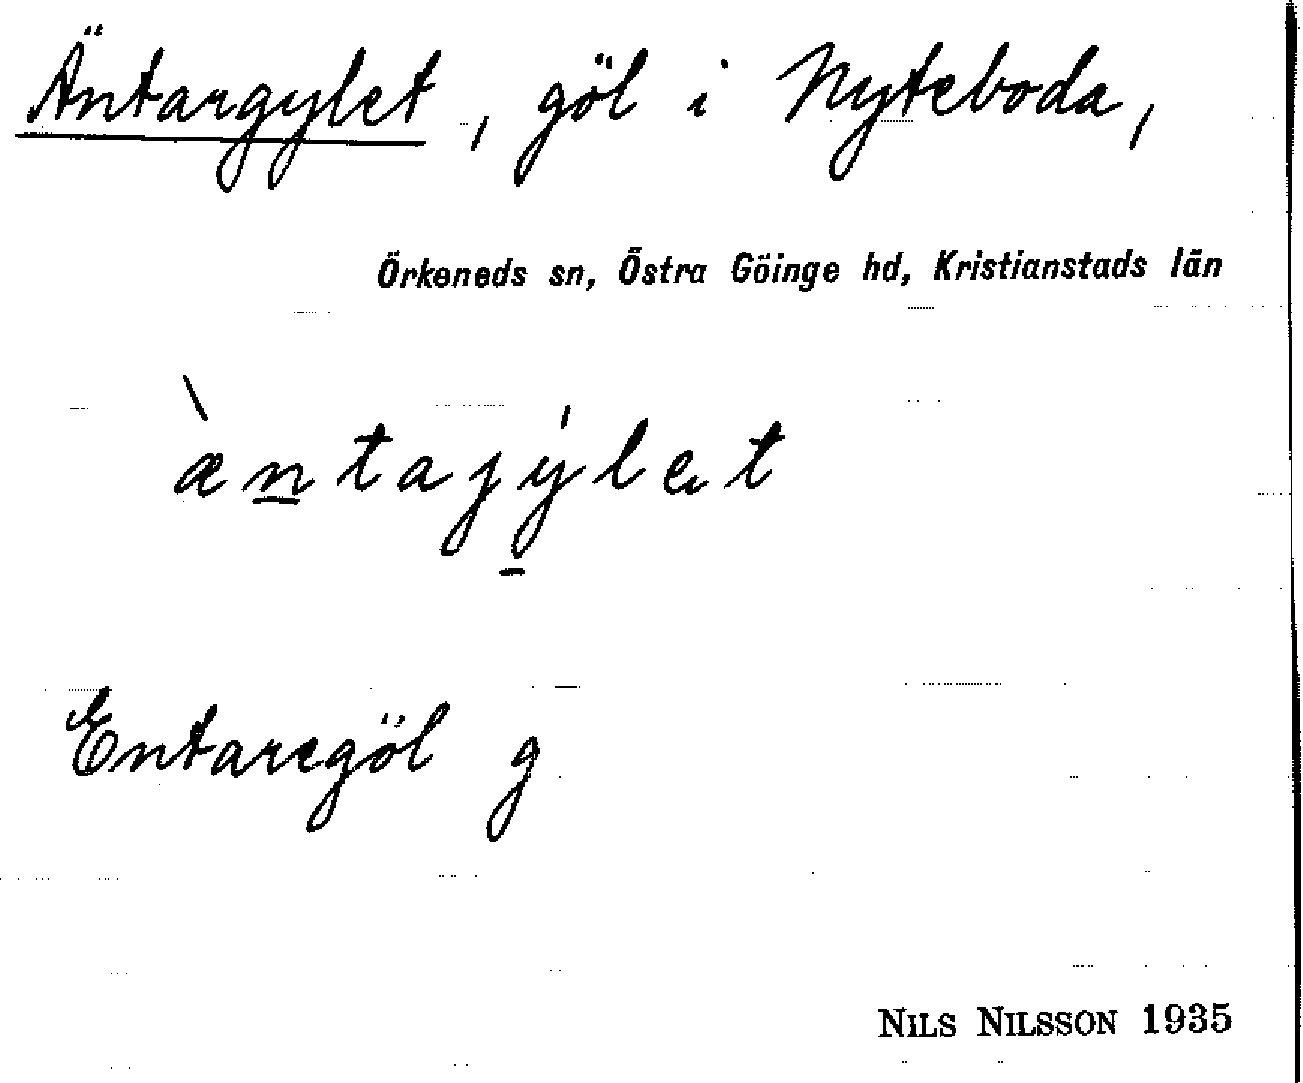 Äntargylet, göl i Nyteboda,
Örkeneds sn, Östra Göinge hd, Kristianstads län
æ̀ntajýlet
Entaregöl g
NILS NILSSON 1935